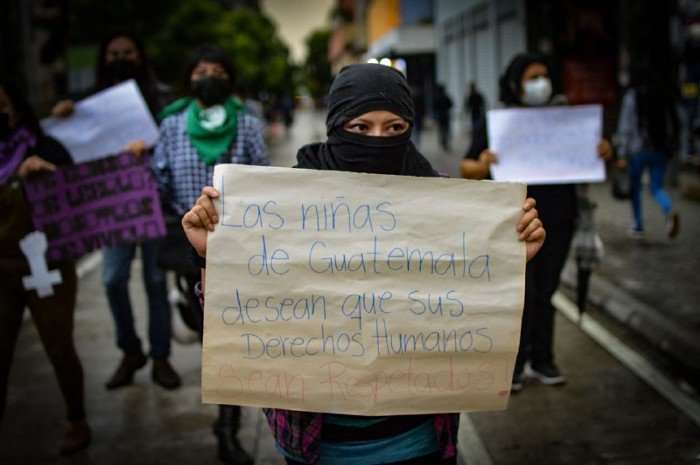 Las niñas
de Guatemala
desean que sus
Derechos Humanos
Sean Respetados!